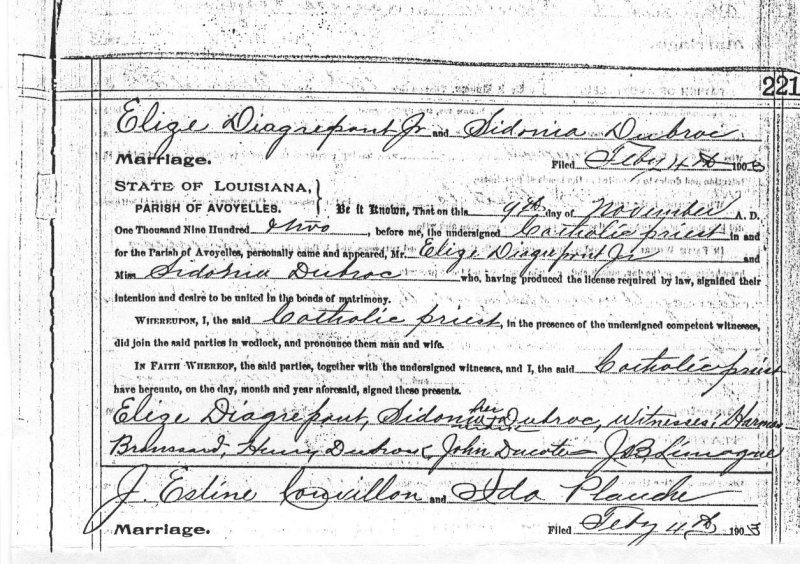 221
Elize Diagrepont Jr and Sidonia Dubroc
Marriage. Filed Feby 4th 1903
STATE OF LOUISIANA,
PARISH OF AVOYELLES. Be it Known, That on this 9th day of November A. D.
One Thousand Nine Hundred & two, before me, the undersigned Catholic priest in and
for the Parish of Avoyelles, personally came and appeared, Mr. Elize Diagrepont Jr and
Miss Sidonia Dubroc who, having produced the license required by law, signified their
intention and desire to be united in the bonds of matrimony.
WHEREUPON, I, the said Catholic priest, in the presence of the undersigned competent witnesses,
did join the said parties in wedlock, and pronounce them man and wife.
IN FAITH WHEREOF, the said parties, together with the undersigned witnesses, and I, the said Catholic priest
have hereunto, on the day, month and year aforesaid, signed these presents.
Elize Diagrepont, Sidonia her Dubroc, Witnesses; Harmas
Broussard, Henry Dubroc, John Ducote
J. Estine Couvillon and Ida Plauche
Marriage. Filed Feby 4th 1903